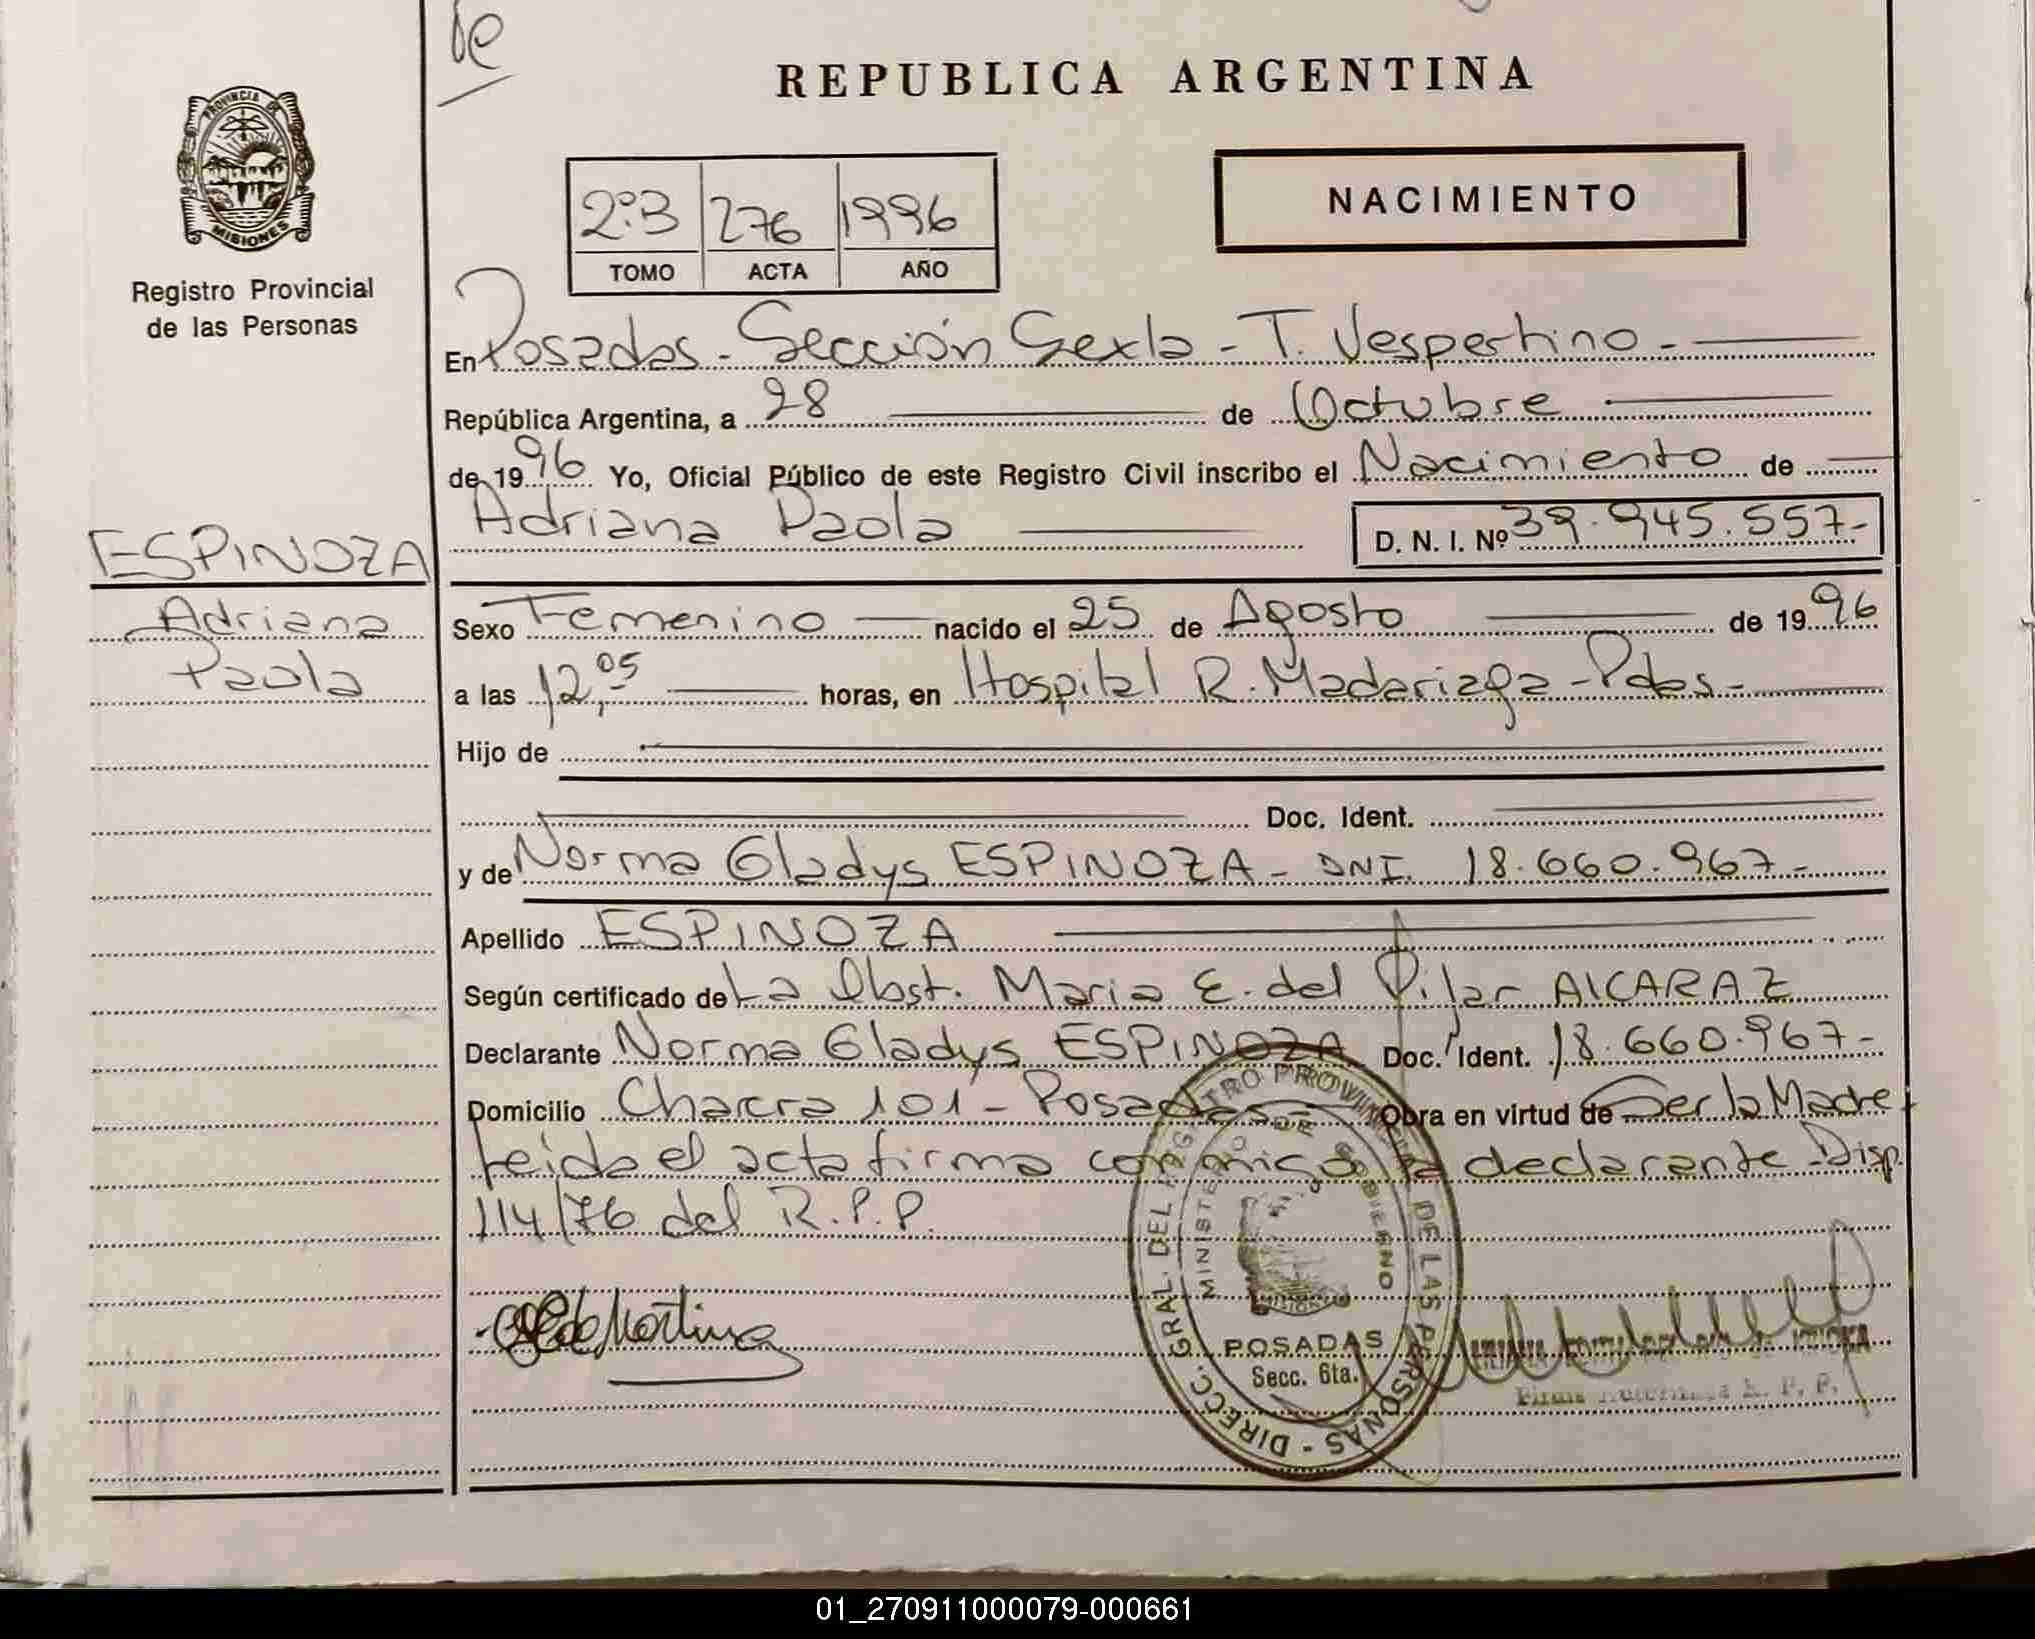 REPUBLICA ARGENTINA
PROVINCIA DE MISIONES
Registro Provincial
de las Personas
NACIMIENTO
2º.B 276 1996
TOMO ACTA AÑO
En Posadas - Sección Sexta - T. Vespertino -
República Argentina, a 28 de Octubre
de 1996 Yo, Oficial Público de este Registro Civil inscribo el Nacimiento de
Adriana Paola D. N. I. Nº 39.945.557-
ESPINOZA
Adriana
Paola
Sexo Femenino nacido el 25 de Agosto de 1996
a las 12,05 horas, en Hospital R. Madariaga - Pdas -
Hijo de
Doc. Ident.
y de Norma Gladys ESPINOZA - DNI. 18.660.967-
Apellido ESPINOZA
Según certificado de La Obst. Maria E. del Pilar AlCARAZ
Declarante Norma Gladys ESPINOZA Doc. Ident. 18.660.967-
Domicilio Chacra 101 - Posadas - Obra en virtud de Ser la Madre
Leida el acta firma conmigo la declarante Disp.
114/76 del R.P.P.
DIRECC. GRAL. DEL REGISTRO PROVINCIAL DE LAS PERSONAS -
MINISTERIO DE GOBIERNO
MISIONES
POSADAS
Secc. 6ta.
R. P. P.
01_270911000079-000661